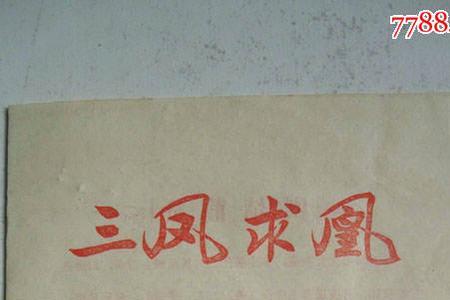 7788
三凤求凰